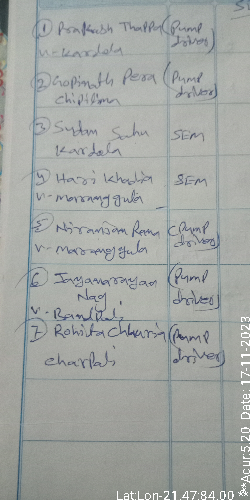 ① Prakash Thappa (Pump
driver)
v- Kardola
② Gopinath Pera (Pump
Chiplima driver)
③ Sudam Sahu SEM
Kardola
4) Hari Khadia SEM
v- marranggula
⑤ Niranjan Rana (Pump
v- marranggula driver)
⑥ Jayanarayan (Pump
Nag driver)
v- Bandpali
⑦ Rohita Chhuria (Pump
charpali driver)
LatLon-21.47:84.00
Acur:5.20 Date:17-11-2023